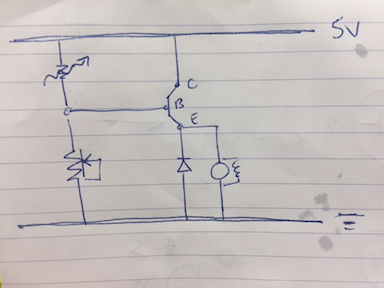 5V
C
B
E